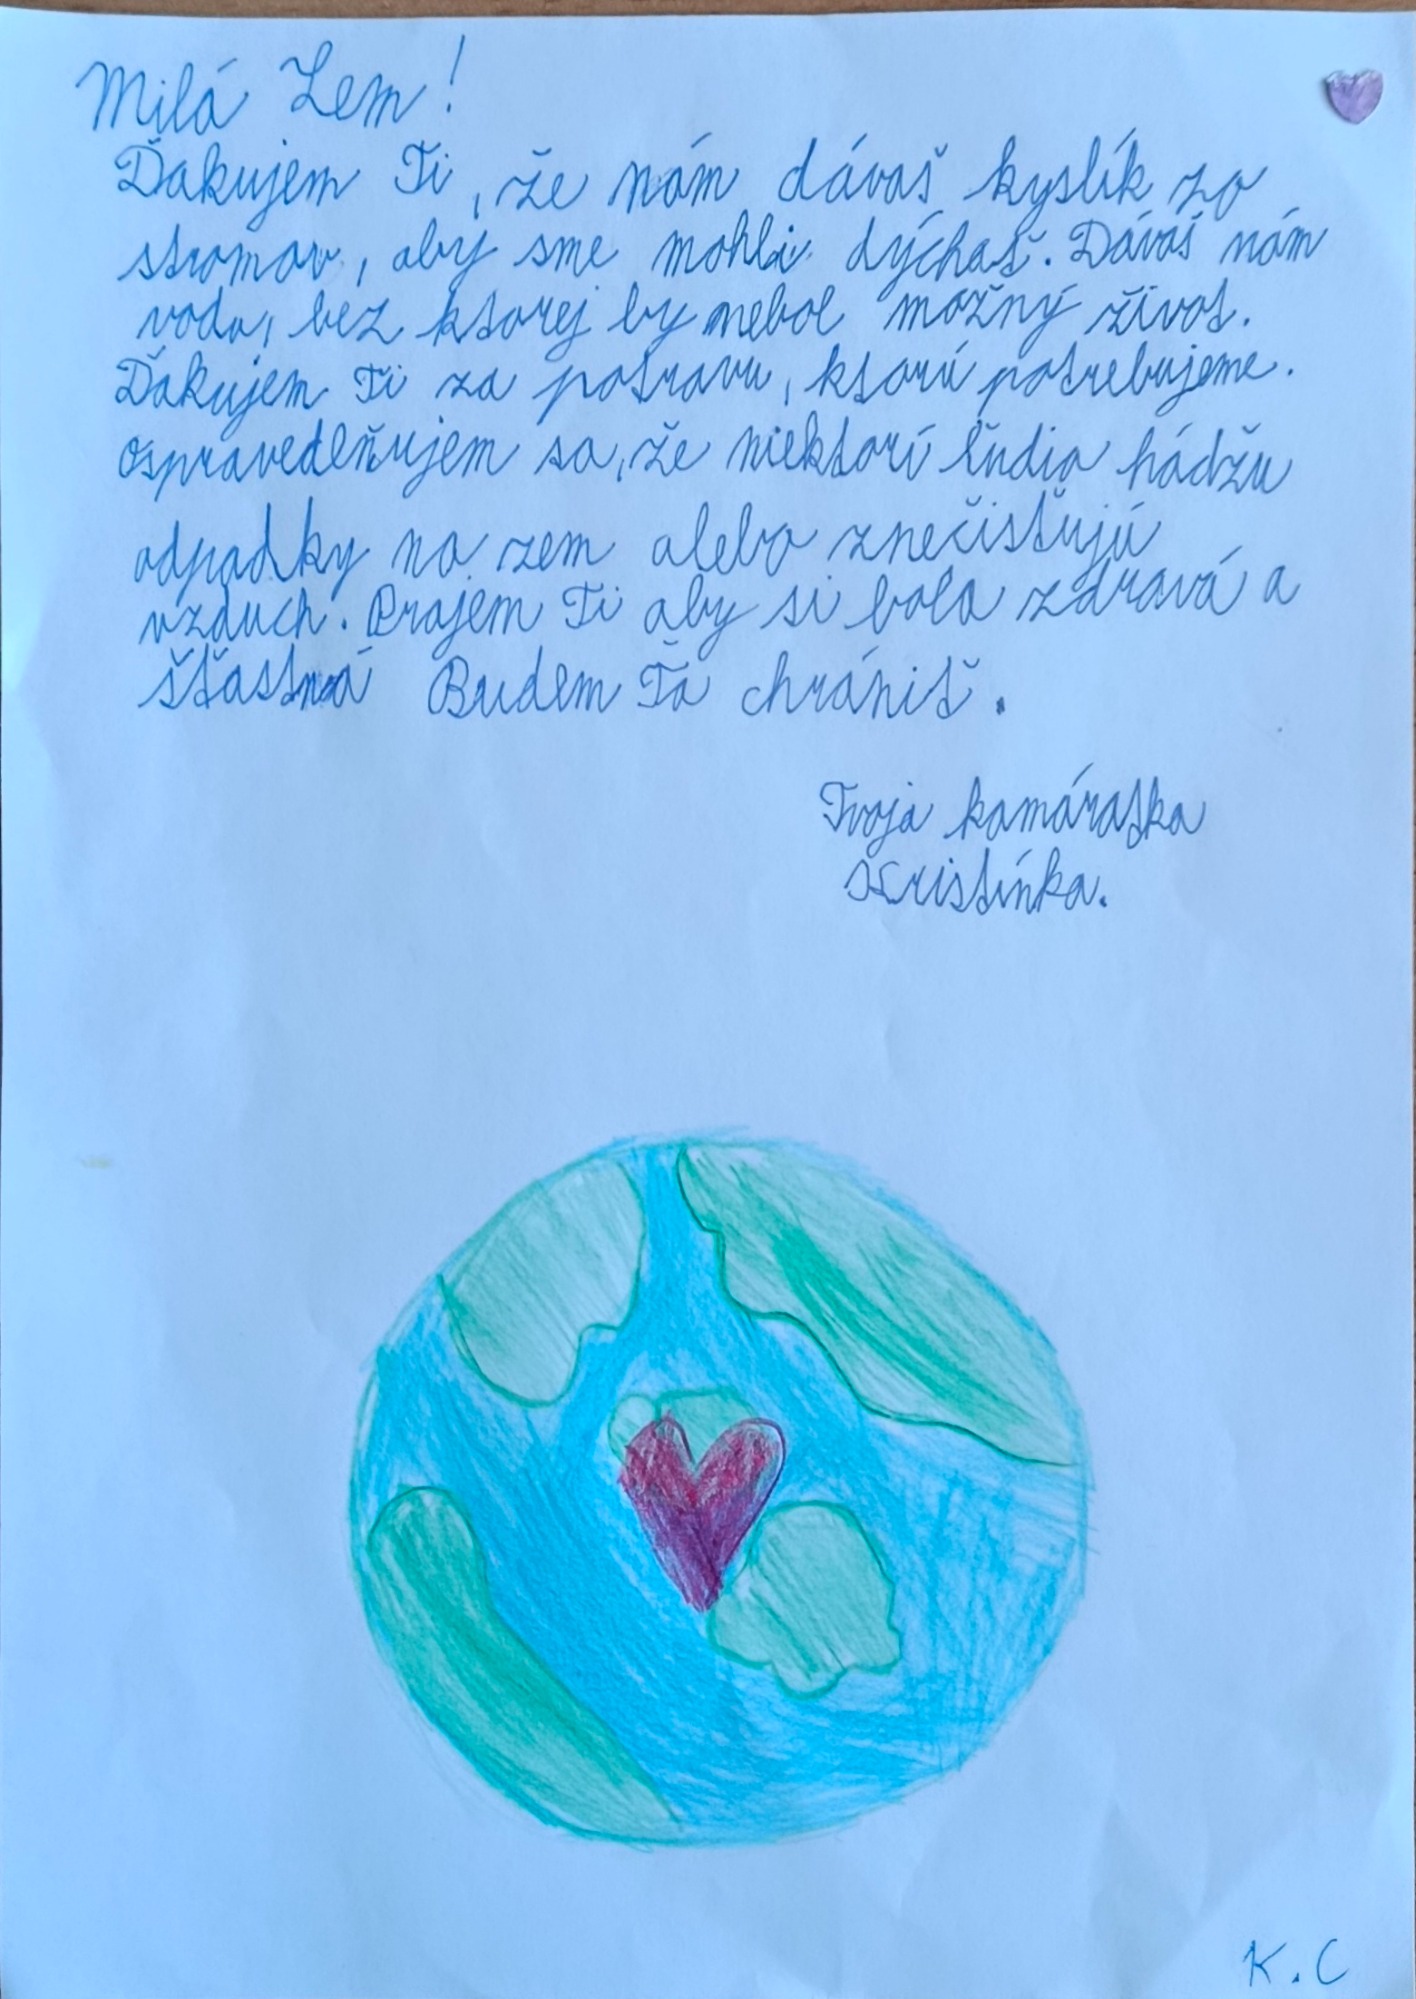 Milá Zem!
Ďakujem Ti, že nám dávaš kyslík zo
stromov, aby sme mohli dýchať. Dávaš nám
vodu, bez ktorej by nebol možný život.
Ďakujem Ti za potravu, ktorú potrebujeme.
Ospravedlňujem sa, že niektorí ľudia hádžu
odpadky na zem alebo znečisťujú
vzduch. Prajem Ti aby si bola zdravá a
šťastná Budem Ťa chrániť.
Tvoja kamáratka
Kristínka.
K.C